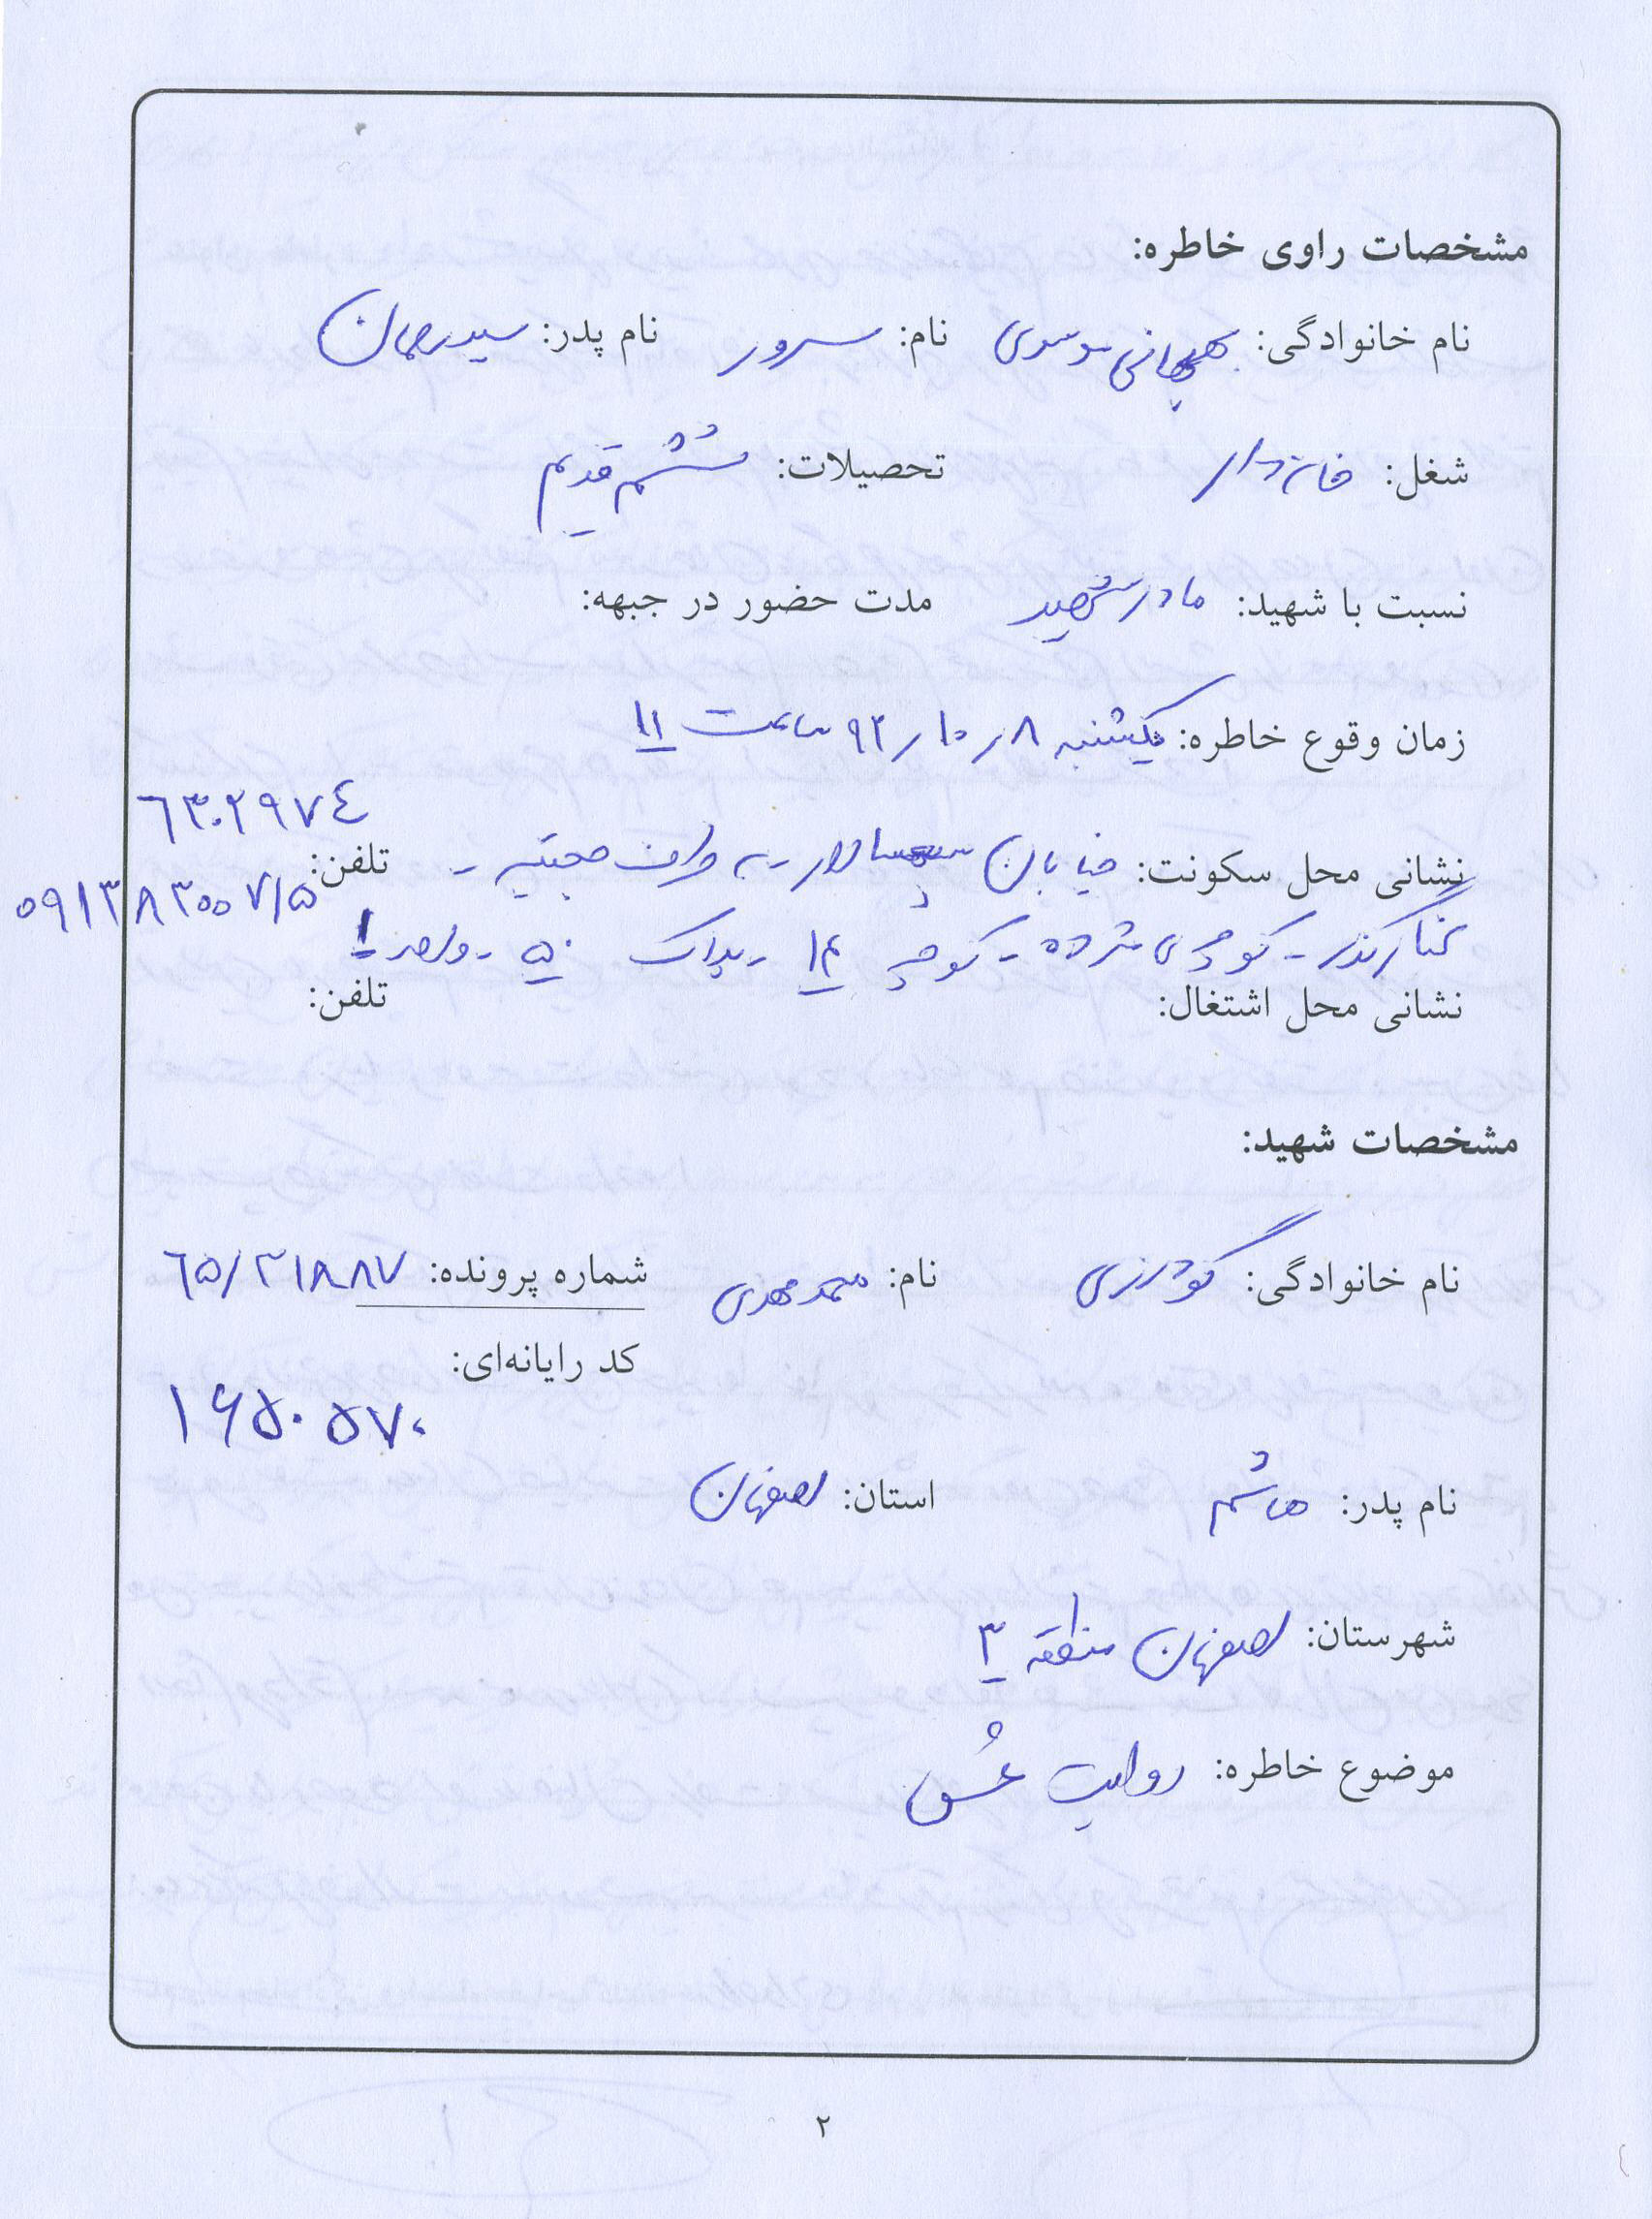 مشخصات راوی خاطره:
نام خانوادگی: بهبهانی موسوی نام: سرور نام پدر: سید رحمان
شغل: خانه‌دار تحصیلات: ششم قدیم
نسبت با شهید: مادر شهید مدت حضور در جبهه:
زمان وقوع خاطره: یکشنبه ۸ / ۱۰ / ۹۲ ساعت ۱۱
٦٣٠٢٩٧٤
نشانی محل سکونت: خیابان سپهسالار - تلفن:
۰۹۱۳۸۳۰۰۷۱۵
کنارگذر - کوچه‌ی - کوچه ۱۴ - پلاک ۵۰ - واحد ۱
نشانی محل اشتغال: تلفن:
مشخصات شهید:
نام خانوادگی: گودرزی نام: محمد مهدی شماره پرونده: ٦٥/٢١٨٨٧
کد رایانه‌ای:
۱۶۵۰۵۷۰
نام پدر: هاشم استان: اصفهان
شهرستان: اصفهان منطقه ۳
موضوع خاطره: روایت عشق
۲